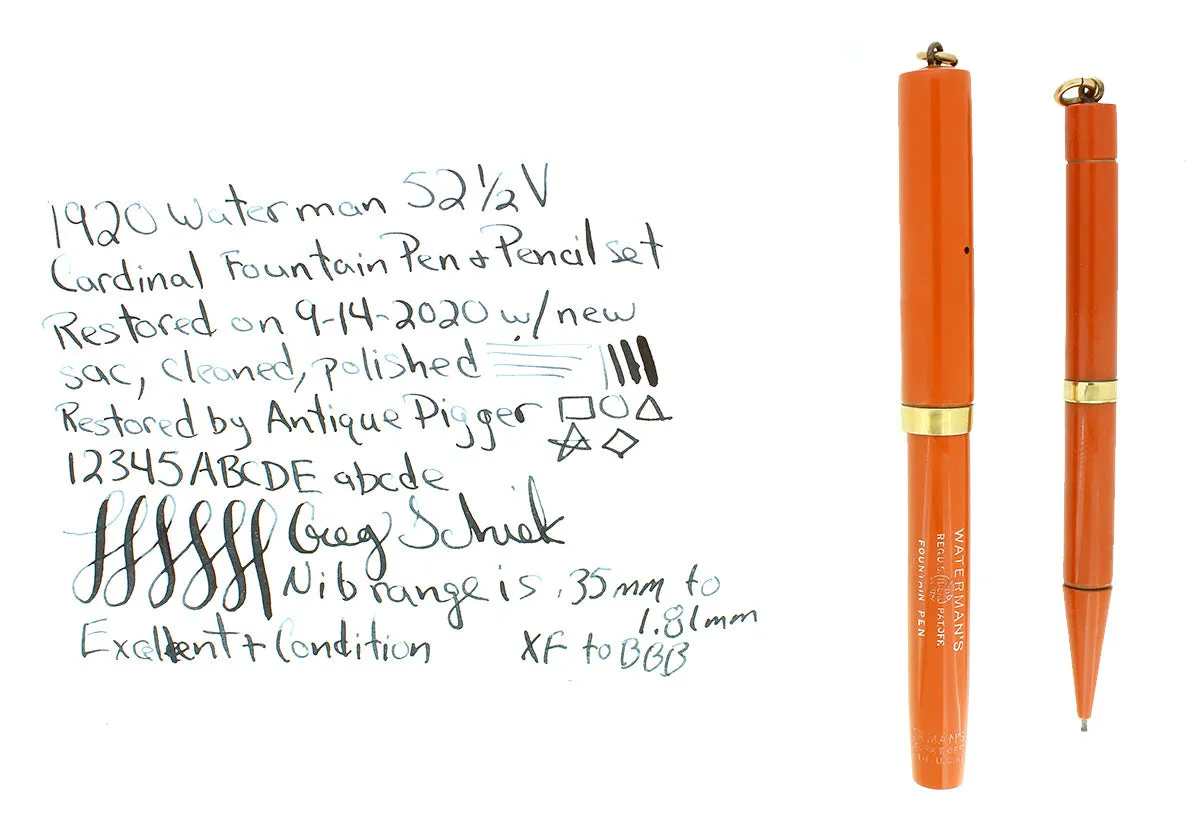 1920 Waterman 52 1/2 V
Cardinal Fountain Pen + Pencil set
Restored on 9-14-2020 w/new
sac, cleaned, polished
Restored by Antique Digger
12345 ABCDE abcde
Greg
Nib range is .35mm to
1.81mm
Excellent + Condition XF to BBB
WATERMAN'S
REG. U.S. PAT. OFF.
FOUNTAIN PEN
MAN'S
PAT. OFF.
IN U.S.A.